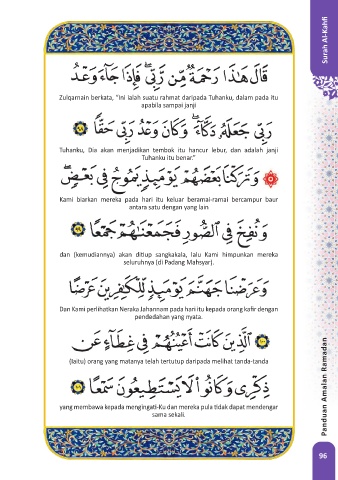 Surah Al-Kahfi
قَالَ هَٰذَا رَحْمَةٌ مِّن رَّبِّي ۖ فَإِذَا جَآءَ وَعْدُ
Zulqarnain berkata, "Ini ialah suatu rahmat daripada Tuhanku, dalam pada itu
apabila sampai janji
رَبِّي جَعَلَهُۥ دَكَّآءَ ۖ وَكَانَ وَعْدُ رَبِّي حَقًّا ۝٩٨
Tuhanku, Dia akan menjadikan tembok itu hancur lebur, dan adalah janji
Tuhanku itu benar."
۞ وَتَرَكْنَا بَعْضَهُمْ يَوْمَئِذٍ يَمُوجُ فِي بَعْضٍ ۖ
Kami biarkan mereka pada hari itu keluar beramai-ramai bercampur baur
antara satu dengan yang lain
وَنُفِخَ فِي ٱلصُّورِ فَجَمَعْنَٰهُمْ جَمْعًا ۝٩٩
dan (kemudiannya) akan ditiup sangkakala, lalu Kami himpunkan mereka
seluruhnya (di Padang Mahsyar).
وَعَرَضْنَا جَهَنَّمَ يَوْمَئِذٍ لِّلْكَٰفِرِينَ عَرْضًا
Dan Kami perlihatkan Neraka Jahannam pada hari itu kepada orang kafir dengan
pendedahan yang nyata.
۝١٠٠ ٱلَّذِينَ كَانَتْ أَعْيُنُهُمْ فِي غِطَآءٍ عَن
(Iaitu) orang yang matanya telah tertutup daripada melihat tanda-tanda
ذِكْرِي وَكَانُوا۟ لَا يَسْتَطِيعُونَ سَمْعًا ۝١٠١
yang membawa kepada mengingati-Ku dan mereka pula tidak dapat mendengar
sama sekali.
Panduan Amalan Ramadan
96